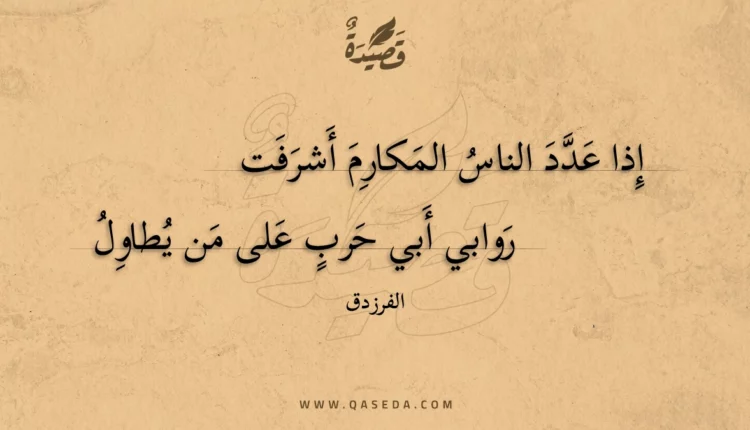 قَصِيدَةٌ
إِذا عَدَّدَ الناسُ المَكارِمَ أَشرَفَت
رَوابي أَبي حَربٍ عَلى مَن يُطاوِلُ
الفرزدق
WWW.QASEDA.COM